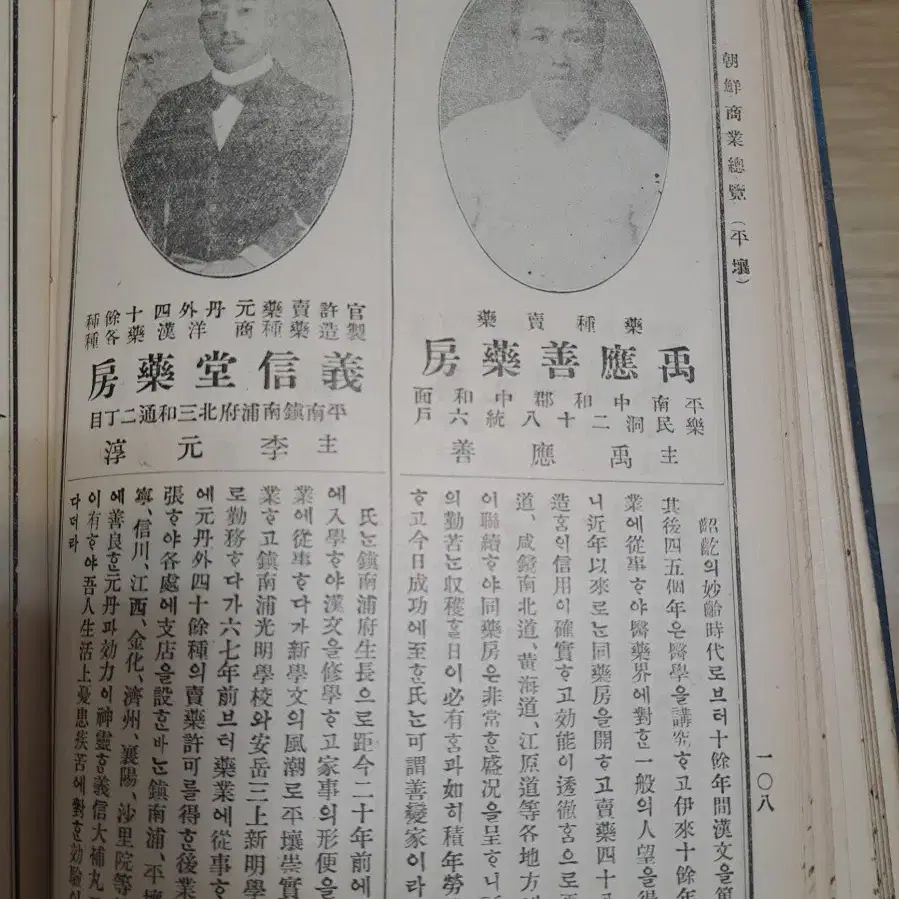 朝鮮商業總覽（平壤）
一〇八
藥種賣藥
禹應善藥房
平南中和郡中和面
樂民洞二十八統六戶
主禹應善
齠齕의妙齡時代로브터十餘年間漢文을
其後四五個年은醫學을講究ᄒᆞ고伊來十餘年
業에從事ᄒᆞ야醫藥界에對ᄒᆞᆫ一般의人望을得
니近年以來로ᄂᆞᆫ同藥房을開ᄒᆞ고賣藥四十
造ᄒᆞᆷ의信用이確實ᄒᆞ고効能이透徹ᄒᆞᆷ으로
道、咸鏡南北道、黃海道、江原道等各地方
이聯續ᄒᆞ야同藥房은非常ᄒᆞᆫ盛况을呈ᄒᆞ니
의勤苦ᄂᆞᆫ收穫ᄒᆞᆯ日이必有ᄒᆞᆷ과如히積年勞
ᄒᆞ고今日成功에至ᄒᆞᆫ氏ᄂᆞᆫ可謂善變家이라
官許賣藥元丹外四十餘種
製造藥種商洋漢藥各種
義信堂藥房
平南鎭南浦府北三和通二丁目
主李元淳
氏ᄂᆞᆫ鎭南浦府生長으로距今二十年前에
에入學ᄒᆞ야漢文을修學ᄒᆞ고家事의形便을
業에從事ᄒᆞ다가新學文의風潮로平壤崇實
業ᄒᆞ고鎭南浦光明學校와安岳三上新明學
로勤務ᄒᆞ다가六七年前브터藥業에從事ᄒᆞ
에元丹外四十餘種의賣藥許可를得ᄒᆞᆫ後業
張ᄒᆞ야各處에支店을設ᄒᆞᆫ바ᄂᆞᆫ鎭南浦、平壤
寧、信川、江西、金化、濟州、襄陽、沙里院等
에善良ᄒᆞᆫ元丹과効力이神靈ᄒᆞᆫ義信大補丸
이有ᄒᆞ야吾人生活上憂患疾苦에對ᄒᆞᆫ効驗이
다더라